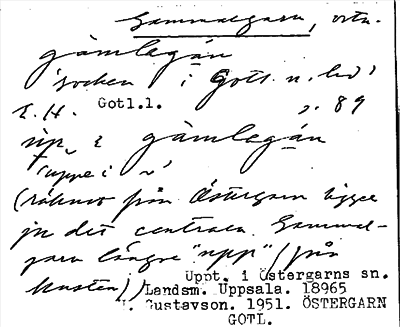 Gammelgarn, ortn.
gàmlegán
'socken i Gotl. n. hd'
Gotl.l. s. 89
up i gàmlegán
'uppe i ~'
(räknas från Östergarn ligger
ju det centrala. Gammel-
garn längre "upp" (från
kusten))
Uppt. i Östergarns sn.
Landsm. Uppsala. 18965
. Gustavson. 1951. ÖSTERGARN
GOTL.